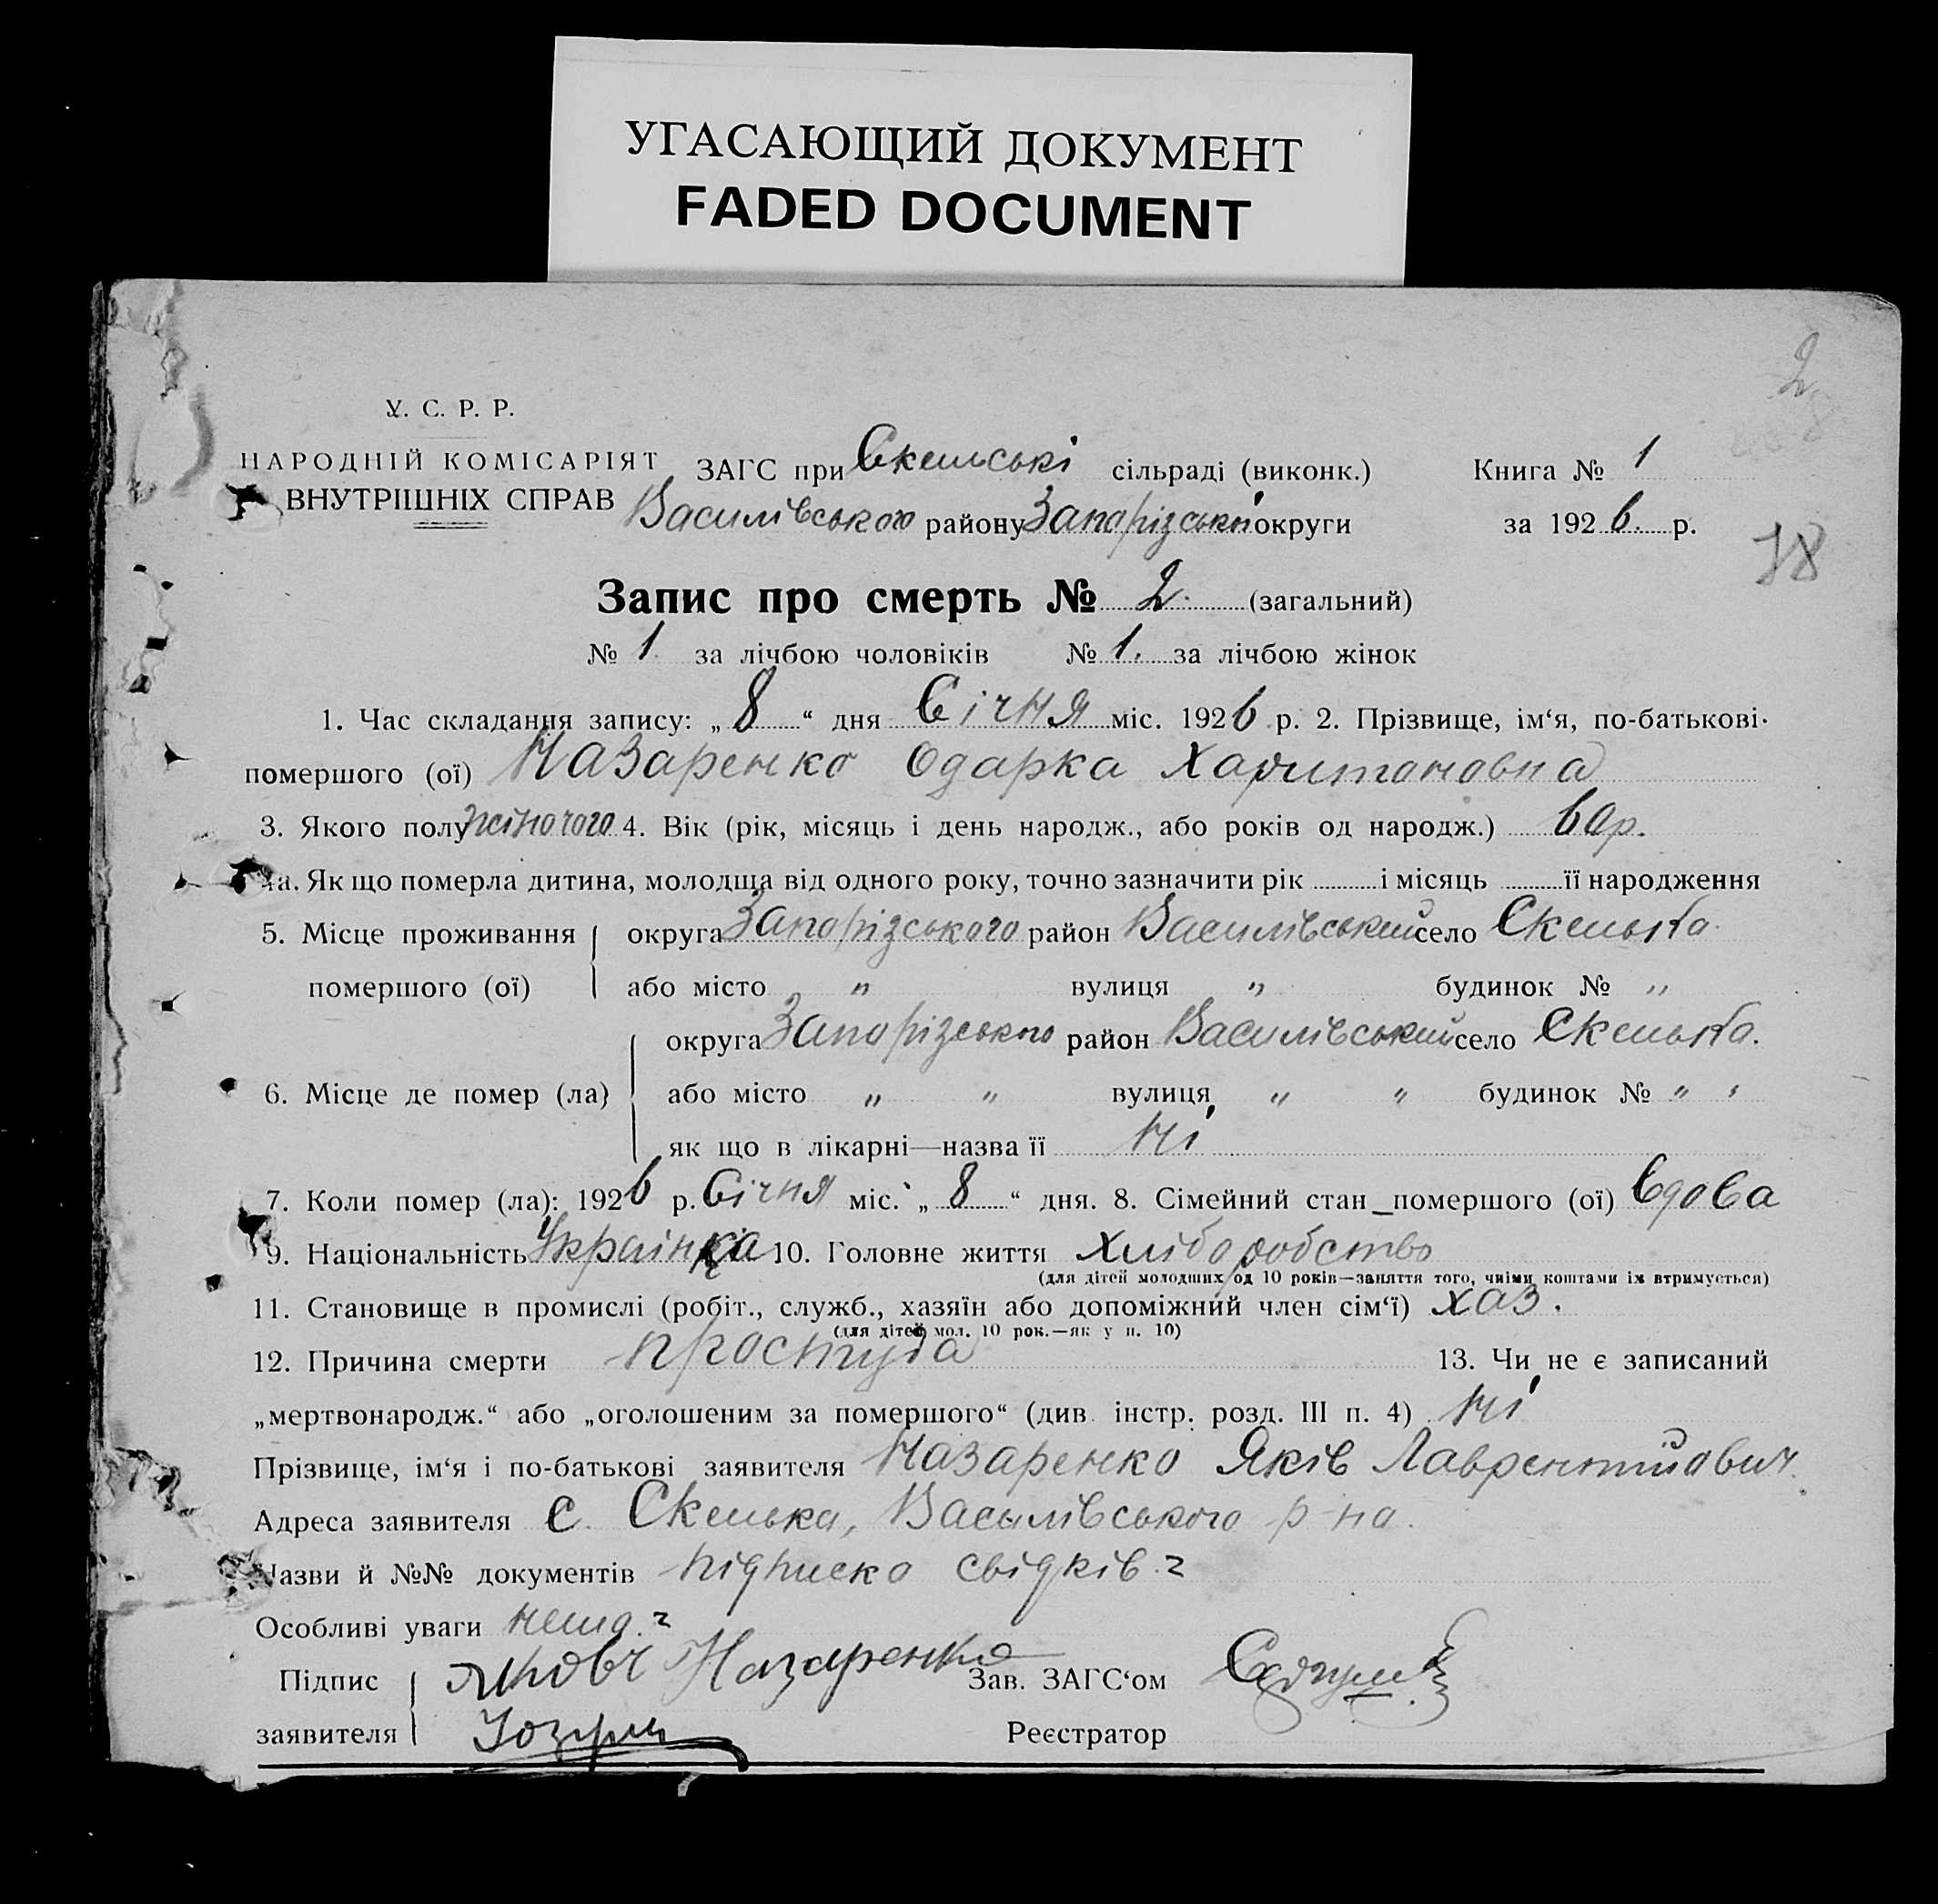 УГАСАЮЩИЙ ДОКУМЕНТ
FADED DOCUMENT
2
У. С. Р. Р.
НАРОДНІЙ КОМІСАРІЯТ
ВНУТРІШНІХ СПРАВ
ЗАГС при Скельські сільраді (виконк.) Книга № 1
Василівського району Запорізької округи за 1926. р.
78
Запис про смерть № 2. (загальний)
№ 1 за лічбою чоловіків № 1. за лічбою жінок
1. Час складання запису: „8“ дня Січня міс. 1926 р. 2. Прізвище, ім‘я, по-батькові
помершого (ої) Назаренко Одарка Харитоновна
3. Якого полу жіночого 4. Вік (рік, місяць і день народж., або років од народж.) 60р.
4а. Як що померла дитина, молодща від одного року, точно зазначити рік і місяць її народження
5. Місце проживання помершого (ої) округа Запорізського район Василівський село Скелька.
або місто „ вулиця „ будинок № „
6. Місце де помер (ла) округа Запорізського район Василівський село Скелька.
або місто „ „ вулиця „ „ будинок № „
як що в лікарні—назва її ні
7. Коли помер (ла): 1926 р. Січня міс. „8“ дня. 8. Сімейний стан помершого (ої) Вдова
9. Національність Українка 10. Головне життя хліборобство
(для дітей молодших од 10 років—заняття того, чиїми коштами їх втримується)
11. Становище в промислі (робіт., служб., хазяїн або допоміжний член сім‘ї) хаз.
(для дітей мол. 10 рок.—як у п. 10)
12. Причина смерти простуда 13. Чи не є записаний
„мертвонародж.“ або „оголошеним за помершого“ (див. інстр. розд. III п. 4) ні
Прізвище, ім‘я і по-батькові заявителя Назаренко Яків Лаврентійович.
Адреса заявителя с. Скелька, Василівського р-на.
Назви й №№ документів підписка свідків.
Особливі уваги нема.
Підпис заявителя Яковъ Назаренко
Зав. ЗАГС‘ом
Реєстратор